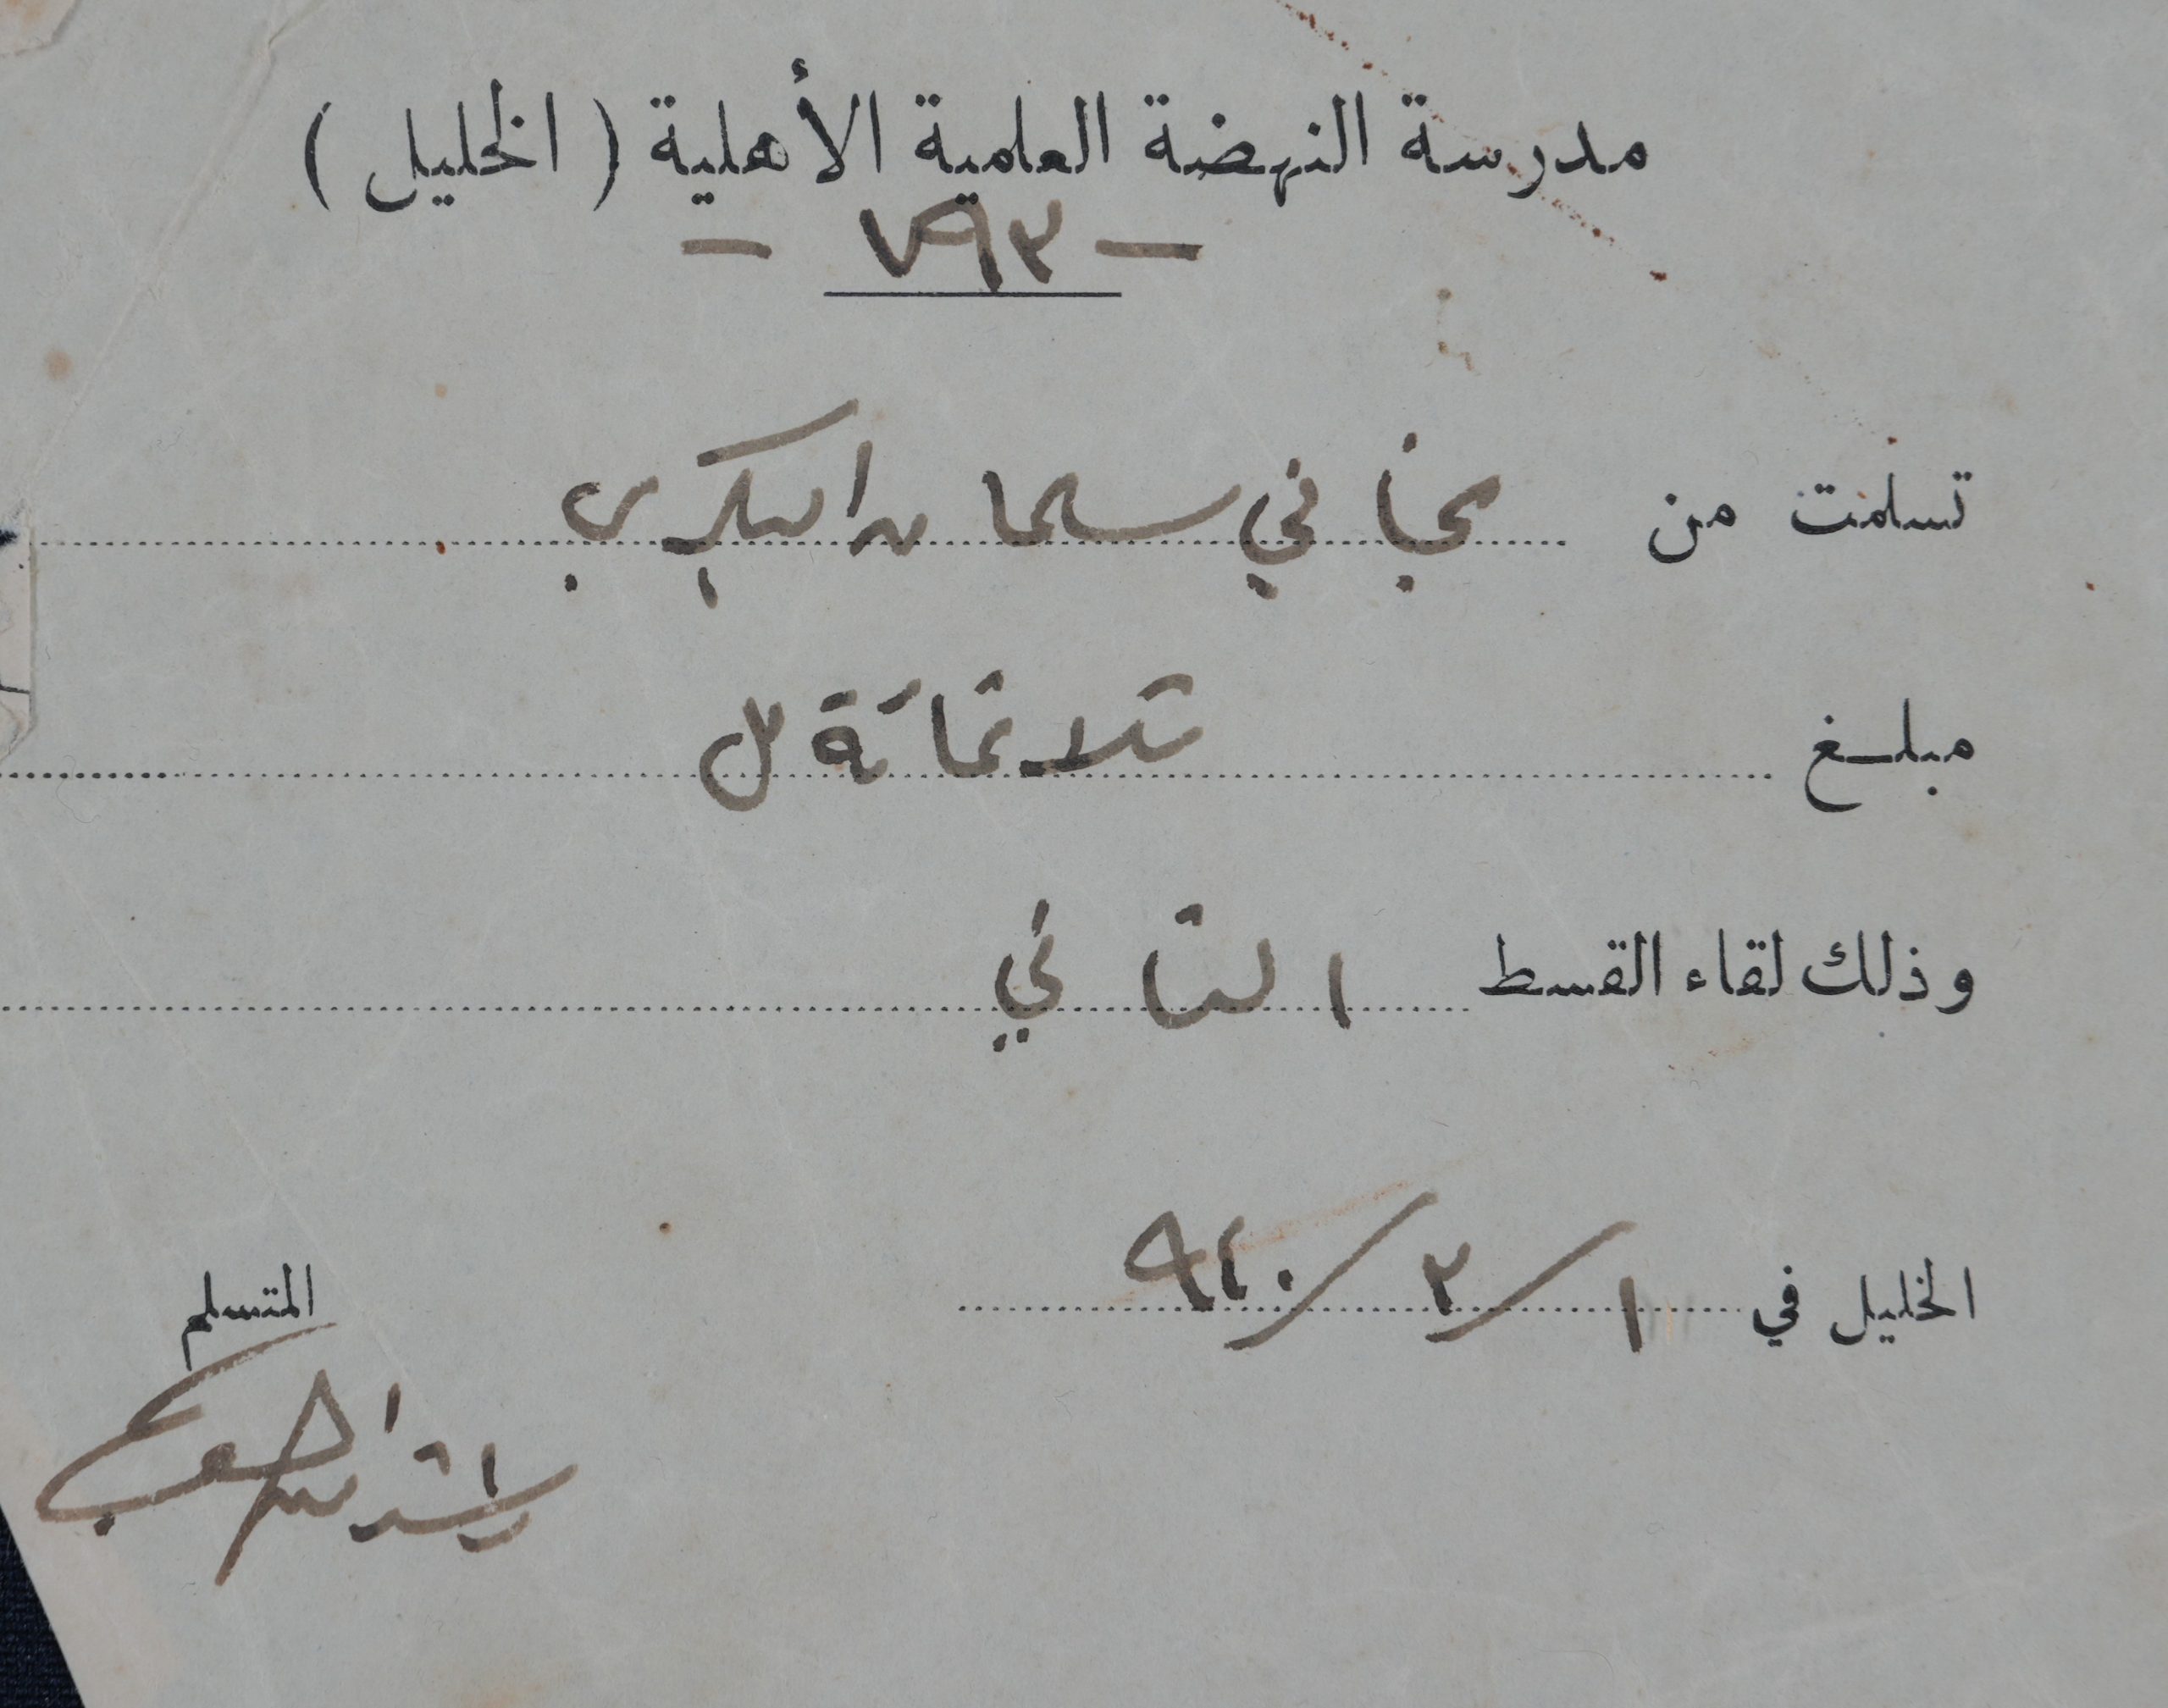 مدرسة النهضة العلمية الأهلية ( الخليل )
- ٧٩٣ -
تسلمت من سليمان البكري
مبلغ ثلاثمائة مل
وذلك لقاء القسط الثاني
الخليل في ١/٣/٩٤٠
المتسلم
راشد